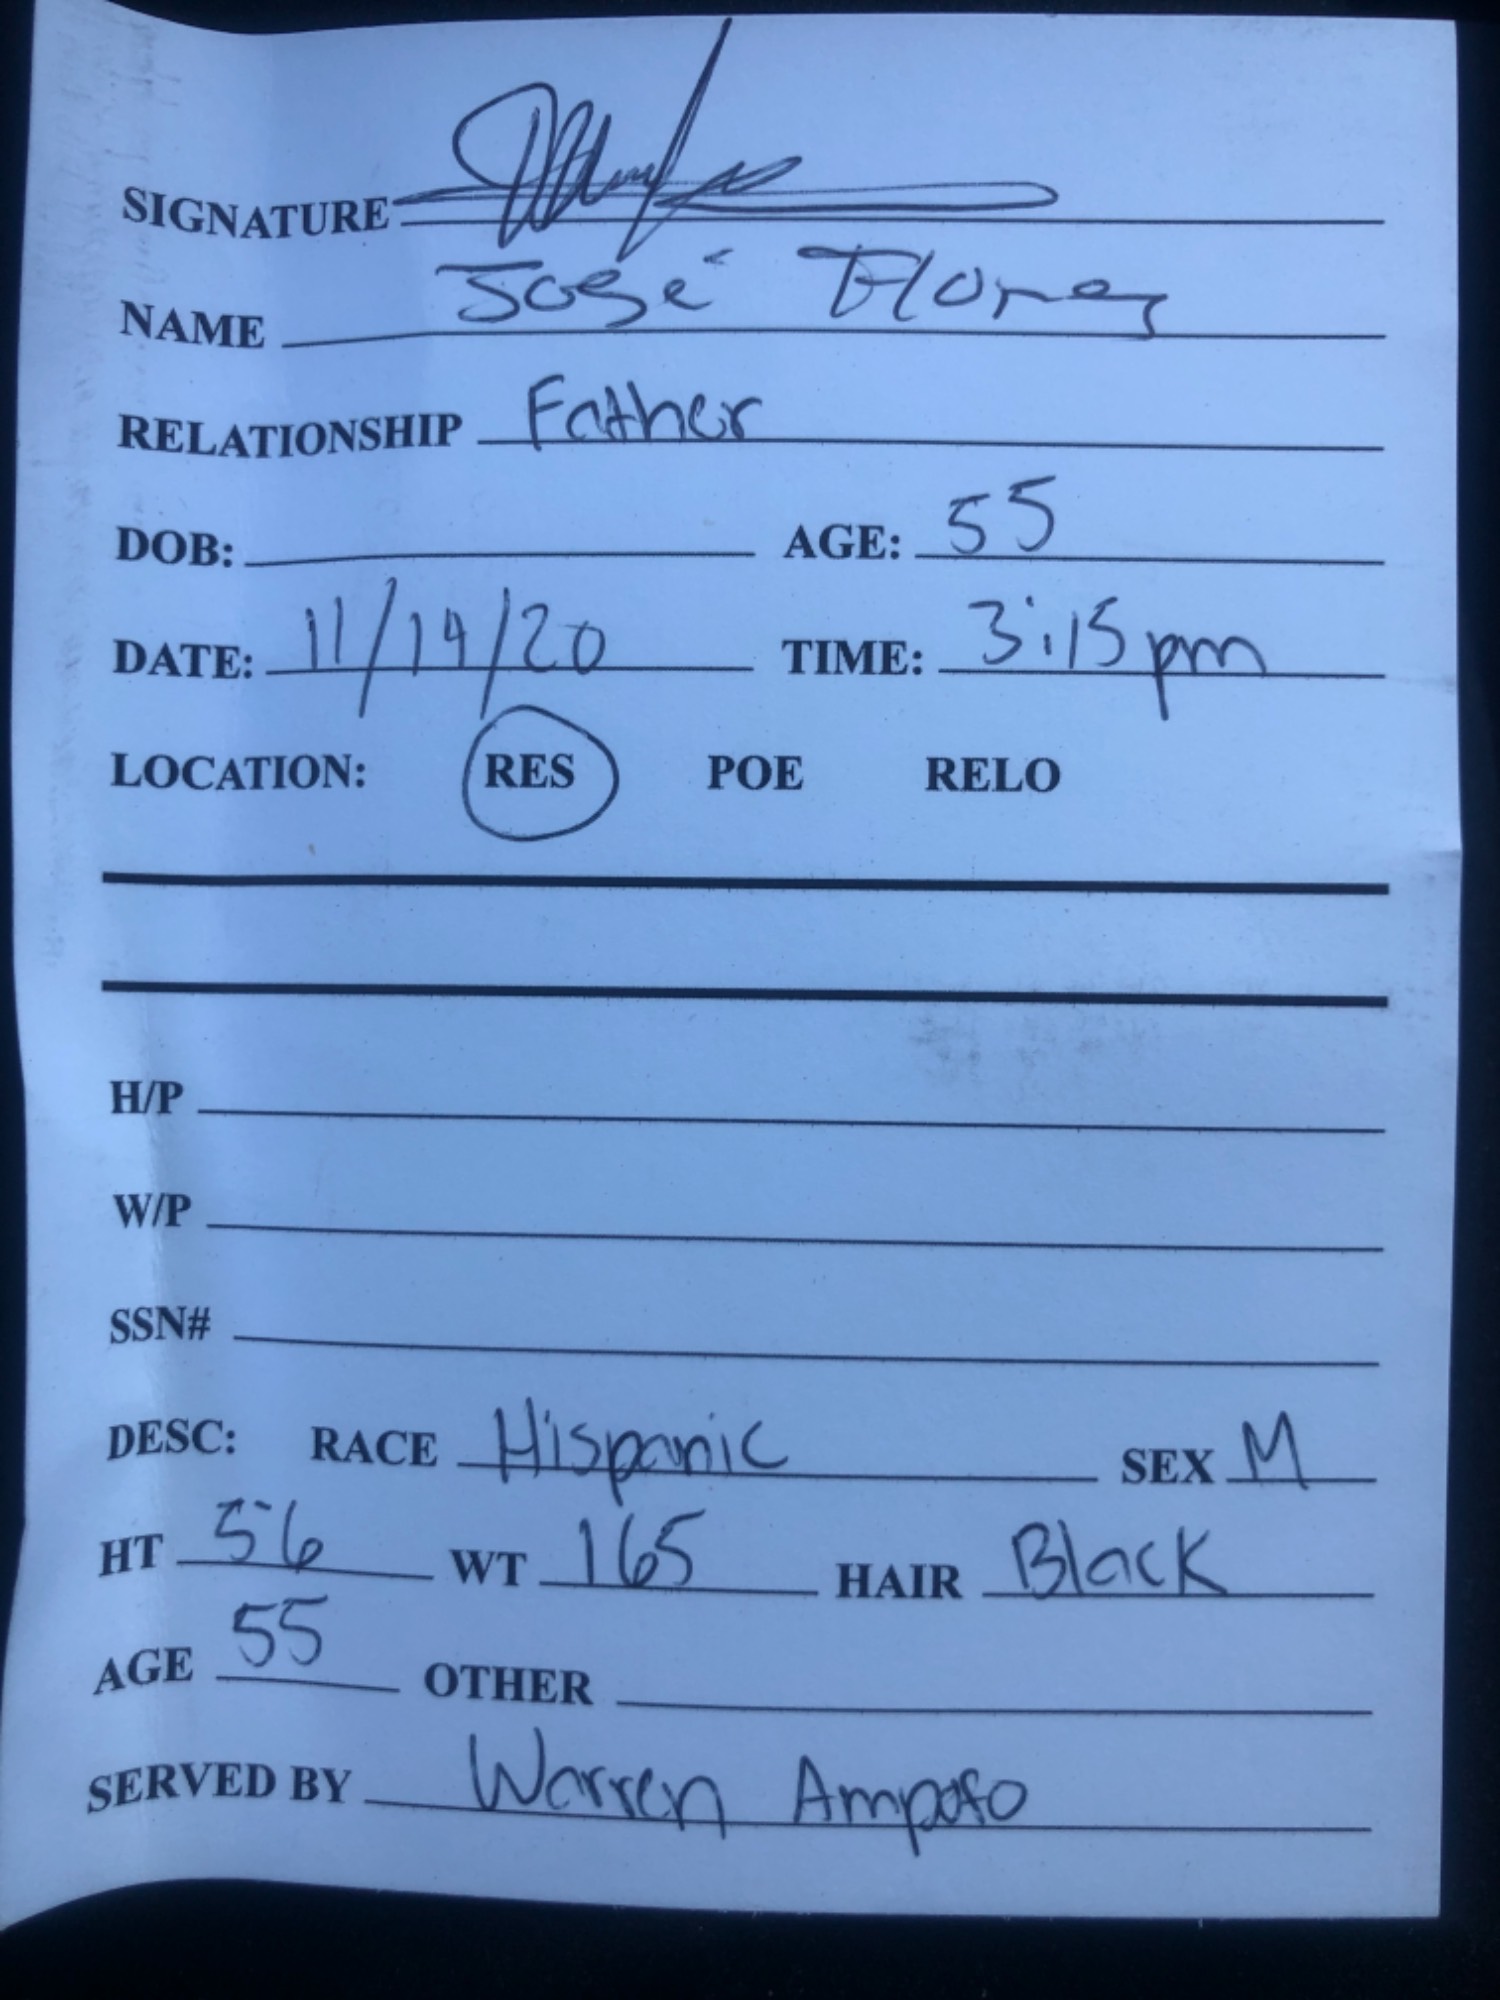 SIGNATURE
NAME José Flores
RELATIONSHIP Father
DOB: AGE: 55
DATE: 11/14/20 TIME: 3:15pm
LOCATION: RES POE RELO
H/P
W/P
SSN#
DESC: RACE Hispanic SEX M
HT 5'6 WT 165 HAIR Black
AGE 55 OTHER
SERVED BY Warren Ampofo